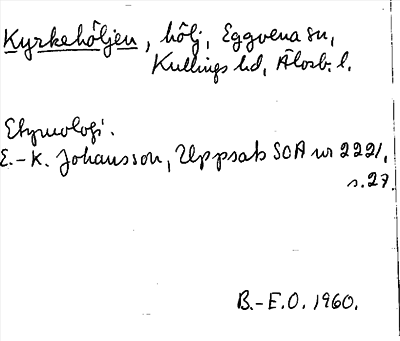 Kyrkehöljen, hölj, Eggvena sn,
Kullings hd, Älvsb. l.
Etymologi.
E.-K. Johansson, Uppsats SOA nr 2221,
s. 27.
B.-E.O. 1960.